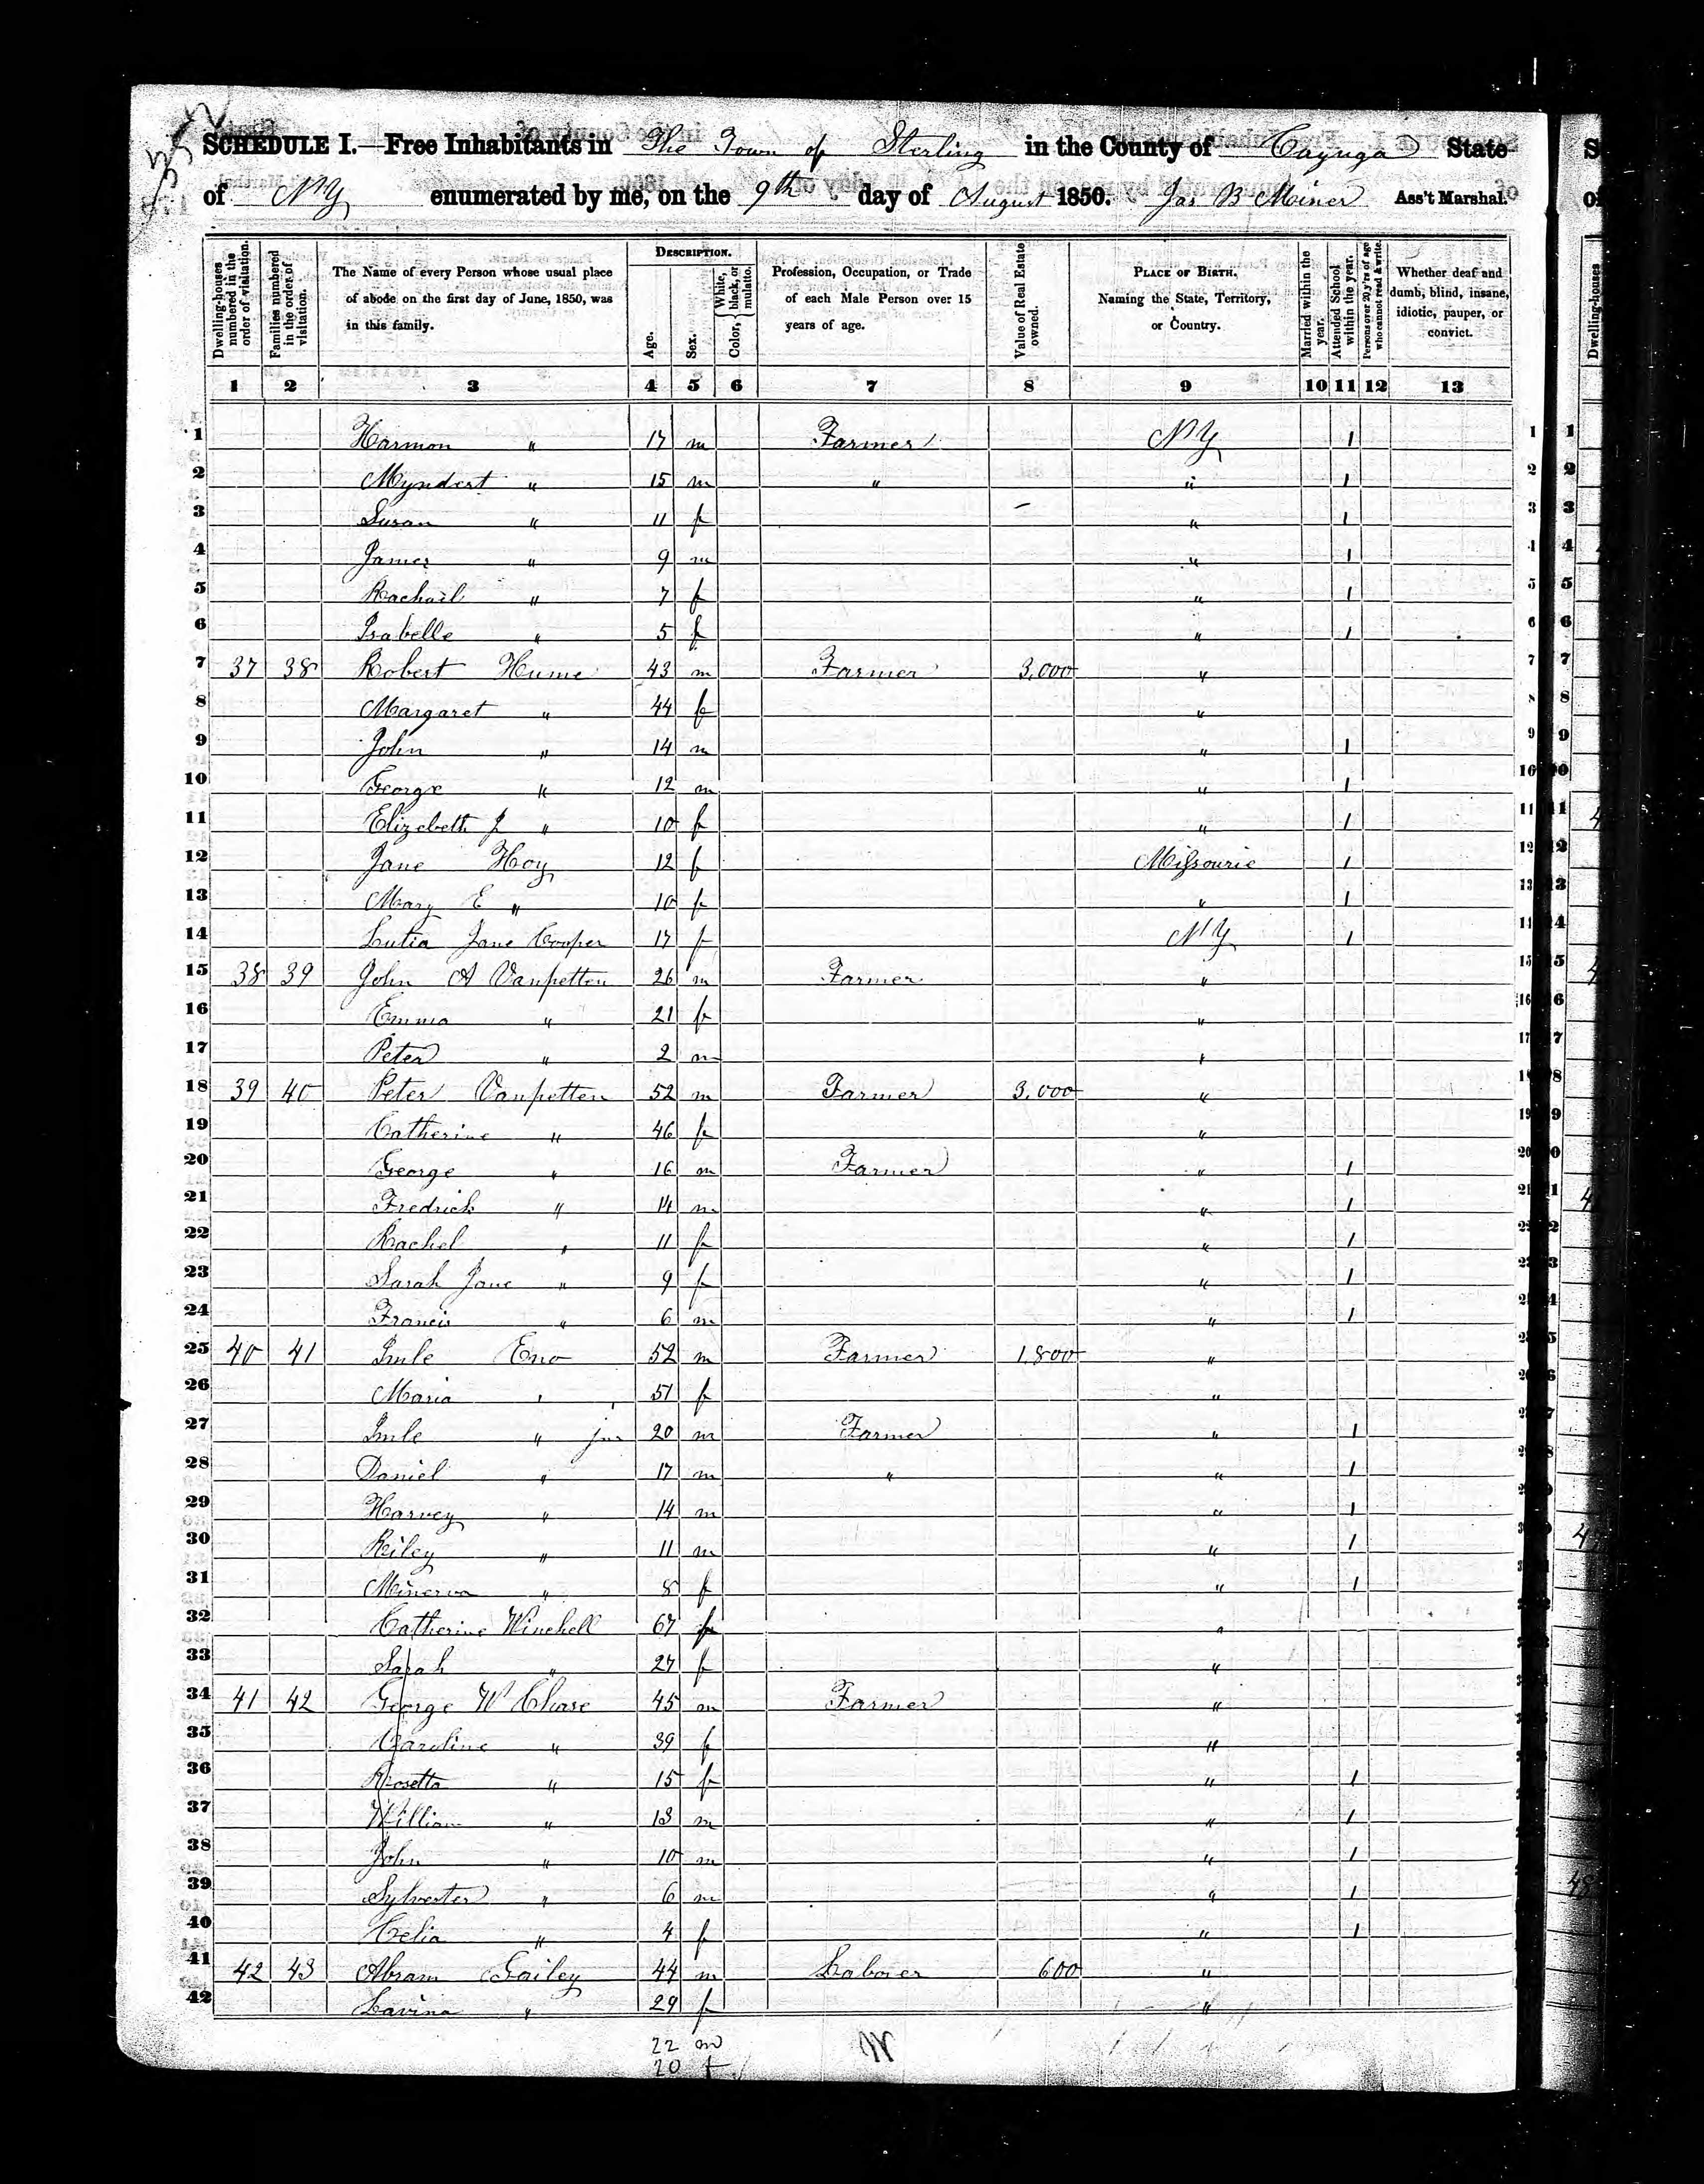 SCHEDULE I.—Free Inhabitants in The Town of Sterling in the County of Cayuga State
of NY enumerated by me, on the 9th day of August 1850. Jas B Miner Ass't Marshal.
Dwelling-houses numbered in the order of visitation.
Families numbered in the order of visitation.
The Name of every Person whose usual place of abode on the first day of June, 1850, was in this family.
DESCRIPTION.
Age.
Sex.
Color, { White, black, or mulatto.
Profession, Occupation, or Trade of each Male Person over 15 years of age.
Value of Real Estate owned.
PLACE OF BIRTH. Naming the State, Territory, or Country.
Married within the year.
Attended School within the year.
Persons over 20 y'rs of age who cannot read & write.
Whether deaf and dumb, blind, insane, idiotic, pauper, or convict.
1 2 3 4 5 6 7 8 9 10 11 12 13
1 Harmon " 17 m Farmer NY 1 1
2 Myndert " 15 m " " 1 2
3 Susan " 11 f – " 1 3
4 James " 9 m " 1 4
5 Rachail " 7 f " 1 5
6 Isabelle " 5 f " 1 6
7 37 38 Robert Hume 43 m Farmer 3,000 " 7
8 Margaret " 44 f " 8
9 John " 14 m " 1 9
10 George " 12 m " 1 10
11 Elizebeth J " 10 f " 1 11
12 Jane Hoy 12 f Missourie 1 12
13 Mary E " 10 f " 1 13
14 Jane Cooper 17 f NY 1 14
15 38 39 John A Vanpetten 26 m Farmer " 15
16 Emma " 21 f " 16
17 Peter " 2 m " 17
18 39 40 Peter Vanpetten 52 m Farmer 3,000 " 18
19 Catherine " 46 f " 19
20 George " 16 m Farmer " 1 20
21 Fredrick " 14 m " 1 21
22 Rachel " 11 f " 1 22
23 Sarah Jane " 9 f " 1
24 Francis " 6 m " 1
25 40 41 Eno 52 m Farmer 1,800 "
26 Maria " 51 f "
27 " jur 20 m Farmer " 1
28 Daniel " 17 m " " 1
29 Harvey " 14 m " 1
30 Riley " 11 m " 1
31 Minerva " 8 f " 1
32 Catherine Winchell 67 f "
33 Sarah " 27 f "
34 41 42 George W Chase 45 m Farmer "
35 Caroline " 39 f "
36 Rosetta " 15 f " 1
37 William " 13 m " 1
38 John " 10 m " 1
39 Sylvester " 6 m " 1
40 Celia " 4 f " 1
41 42 43 Abram Gailey 44 m Laborer 600 "
42 Lavina " 29 f "
22 m
20 f